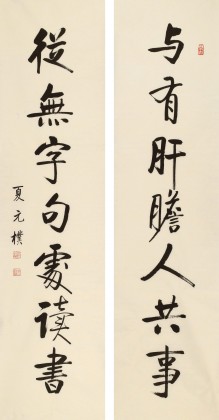 与有肝膽人共事
從無字句處读書
夏元樸